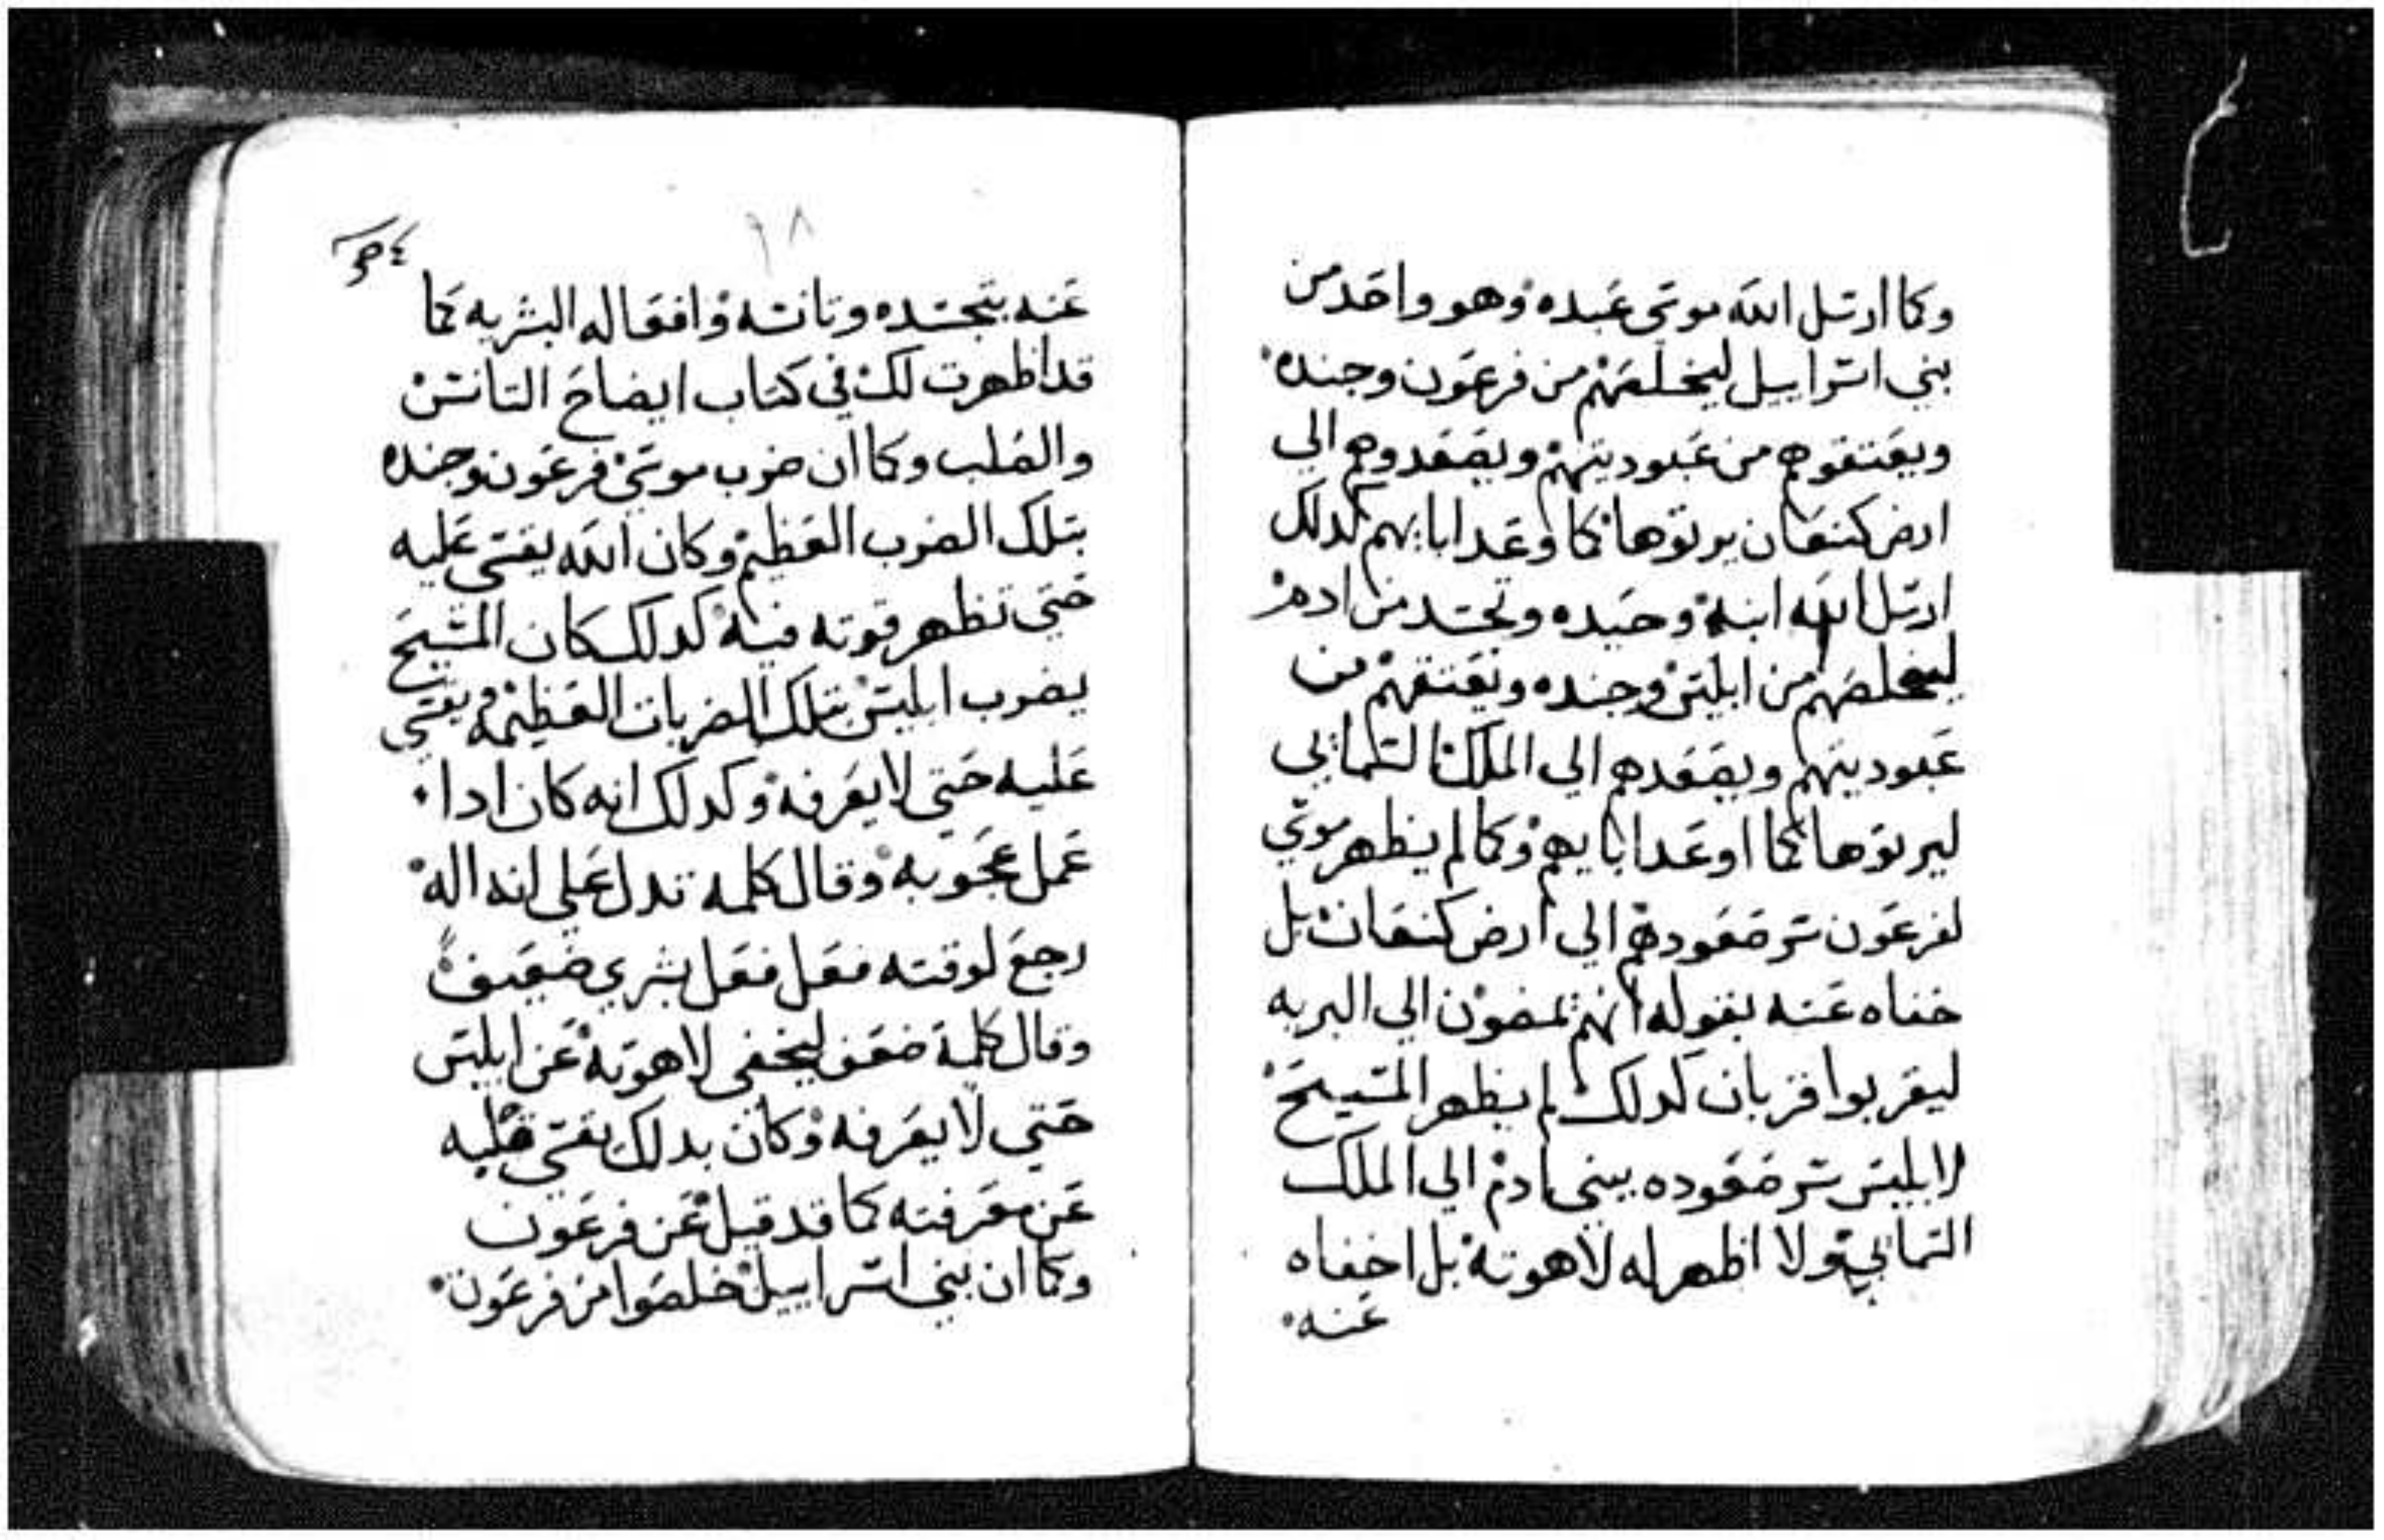 وكما ارسل الله موسى عبده وهو واحد من
بني اسراييل ليخلصهم من فرعون وجنده
ويعتقوهم من عبوديتهم ويصعدوهم الي
ارض كنعان يرتوها كما وعد ابايهم كدلك
ارسل الله ابنه وحيده وتجسد من ادم
ليخلصهم من ابليس وجنده ويعتقهم من
عبوديتهم ويصعدهم الي الملك السماني
ليرتوها كما اوعد ابايهم وكما لم يظهر موسي
لفرعون سر صعودهم الي ارض كنعان بل
خفاه عنه بقوله انهم يمضون الي البريه
ليقربوا قربان كدلك لم يظهر المسيح
لابليس سر صعوده ببني ادم الي الملك
السماني ولا اظهر له لاهوته بل اخفاه
عنه
٦٨
عنه بتجسده وتانسه وافعاله البشريه كما
قد اظهرت لك في كتاب ايضاح التانس
والصلب وكما ان ضرب موسي فرعون وجنده
بتلك الضرب العظيم وكان الله يقسي عليه
حتي تظهر قوته فيه كدلك كان المسيح
يضرب ابليس بتلك الضربات العظيمه ويقسي
عليه حتي لا يعرفه وكدلك انه كان ادا
عمل عجوبه وقال كلمه تدل علي انه اله
رجع لوقته فعل فعل بشري ضعيف
وقال كلمة ضعف ليخفي لاهوته عن ابليس
حتي لا يعرفه وكان بدلك يقسي قلبه
عن معرفته كما قد قيل عن فرعون
وكما ان بني اسراييل خلصوا من فرعون